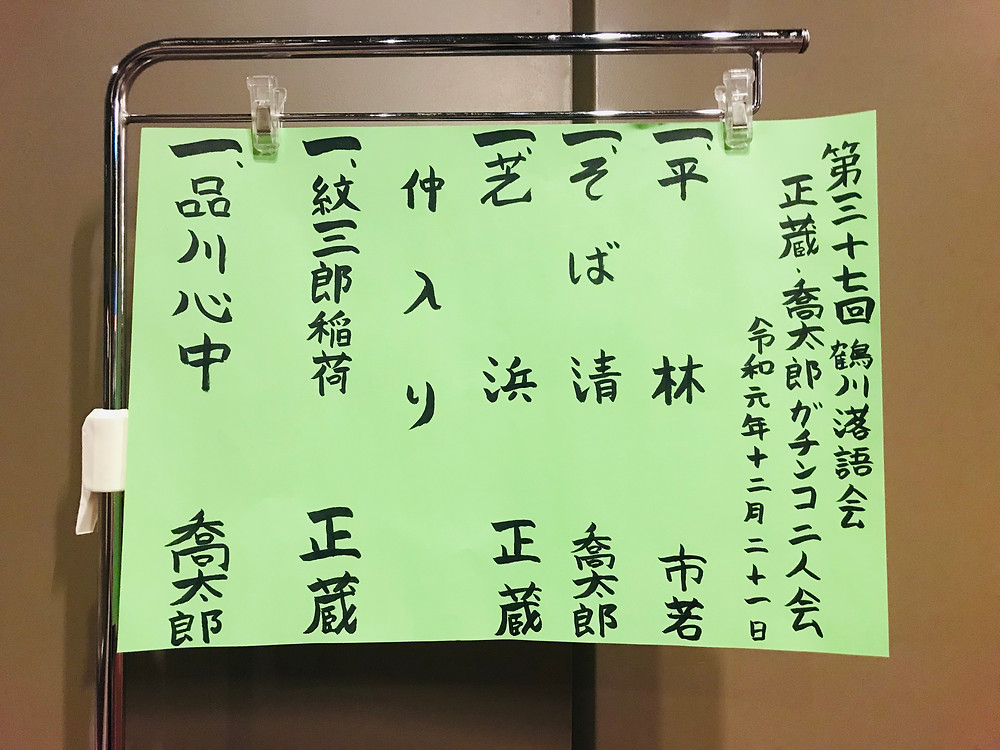 第三十七回 鶴川落語会
正蔵・喬太郎ガチンコ二人会
令和元年十二月二十一日
一、平林 市若
一、そば清 喬太郎
一、芝浜 正蔵
仲入り
一、紋三郎稲荷 正蔵
一、品川心中 喬太郎